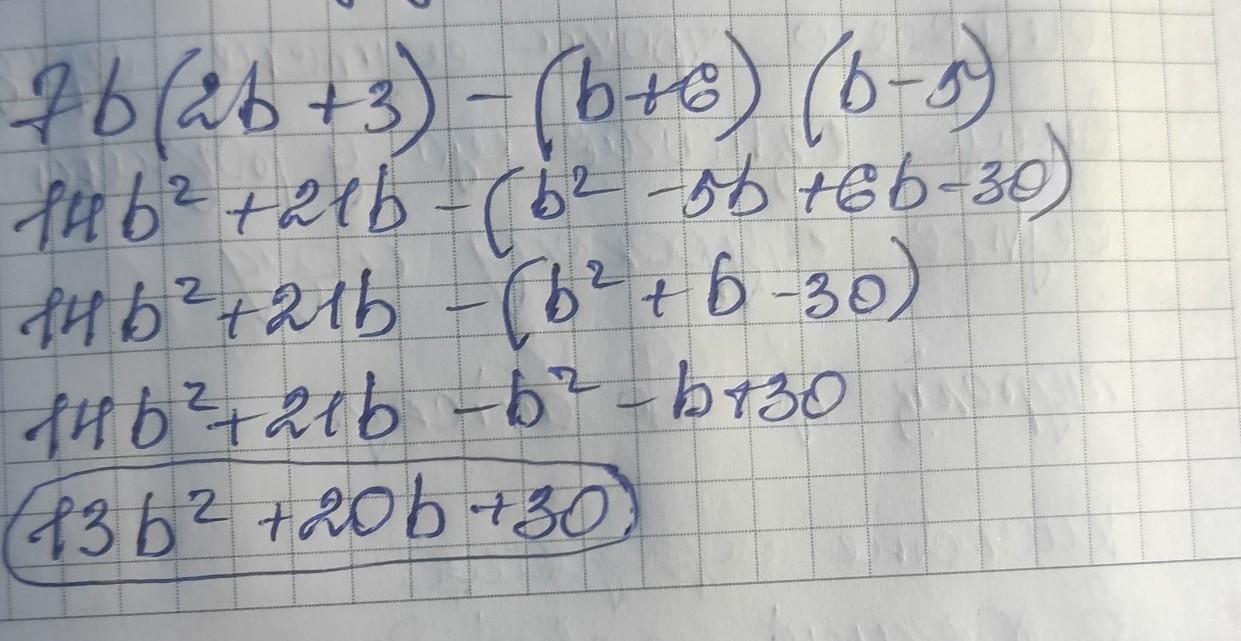 7b(2b+3)-(b+6)(b-5)
14b²+21b-(b²-5b+6b-30)
14b²+21b-(b²+b-30)
14b²+21b-b²-b+30
13b²+20b+30